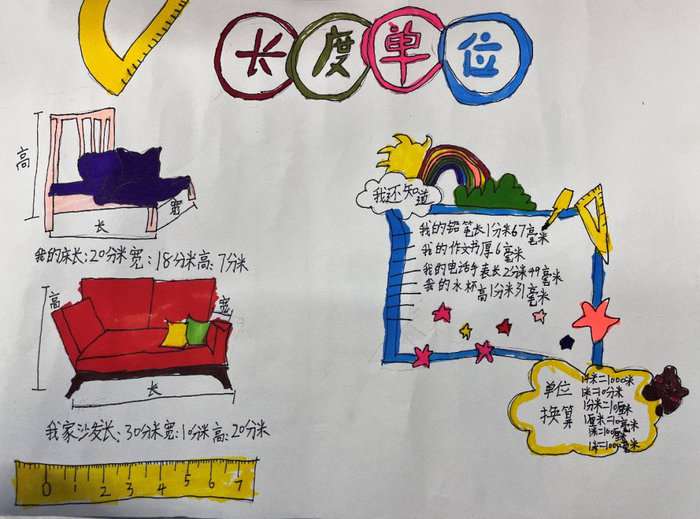 长度单位
高
长
宽
我的床长:20分米宽:18分米高:7分米
高
宽
长
我家沙发长:30分米宽:10分米高:20分米
0 1 2 3 4 5 6 7
我还知道
我的铅笔长1分米67毫米
我的作文书厚6毫米
我的电话手表长2分米44毫米
我的水杯高1分米31毫米
单位
换算
1千米=1000米
1米=10分米
1分米=10厘米
1厘米=10毫米
1米=100厘米
1米=1000毫米